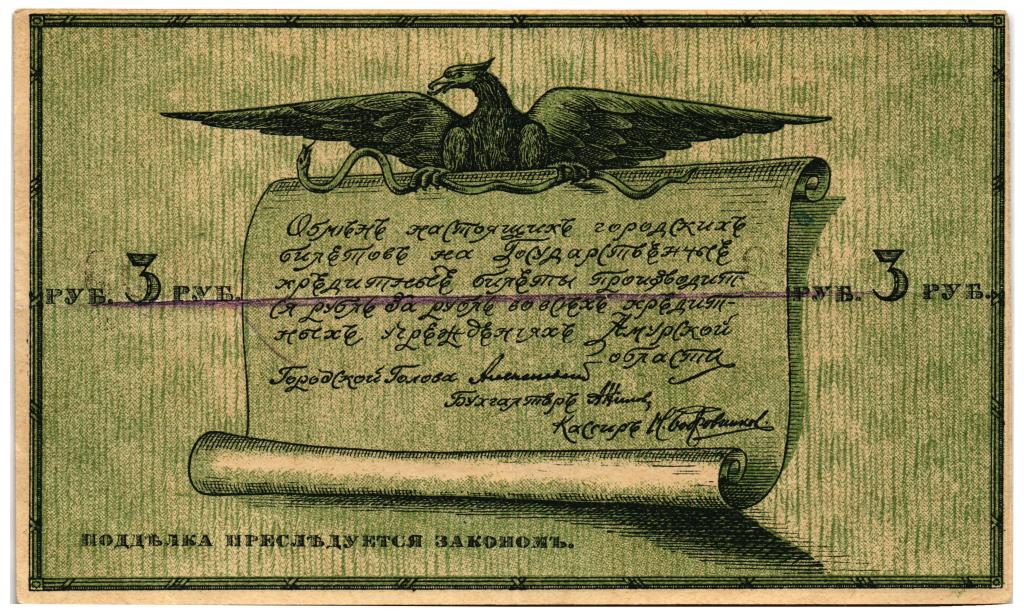 Обмѣнъ настоящихъ городскихъ
билетовъ на Государственные
кредитные билеты производит
ся рубль за рубль во всѣхъ кредит-
ныхъ учрежденіяхъ Амурской
области
РУБ. 3 РУБ.
РУБ. 3 РУБ.
Городской Голова
Бухгалтеръ
Кассиръ
ПОДДѢЛКА ПРЕСЛѢДУЕТСЯ ЗАКОНОМЪ.